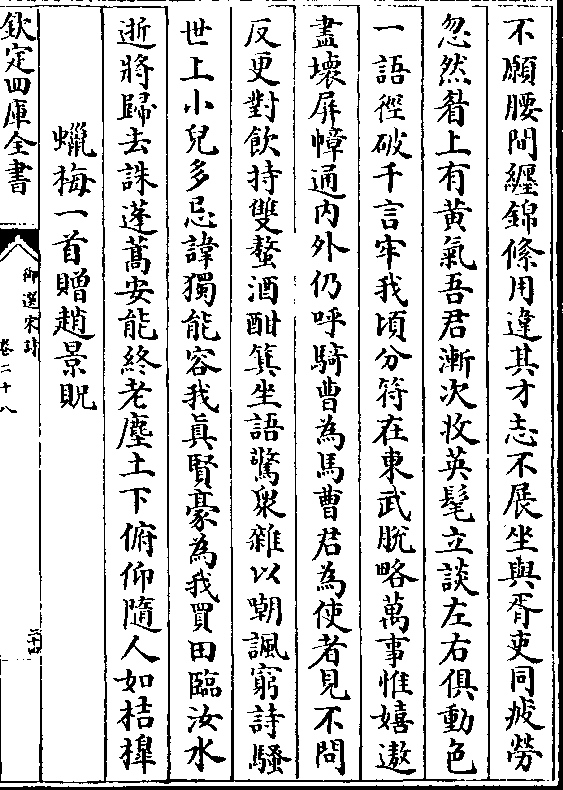 不願腰間纒錦絛用違其才志不展坐與胥吏同疲勞
忽然眉上有黄氣吾君漸次收英髦立談左右俱動色
一語徑破千言牢我頃分符在東武脱略萬事惟嬉遨
盡壊屏幛通内外仍呼騎曹為馬曹君為使者見不問
反更對飲持雙螯酒酣箕坐語驚衆雜以嘲諷窮詩騷
世上小兒多忌諱獨能容我真賢豪為我買田臨汝水
逝將歸去誅蓬蒿安能終老塵土下俯仰隨人如桔橰
蠟梅一首贈趙景貺
欽定四庫全書
御選宋詩
卷二十八
二十四